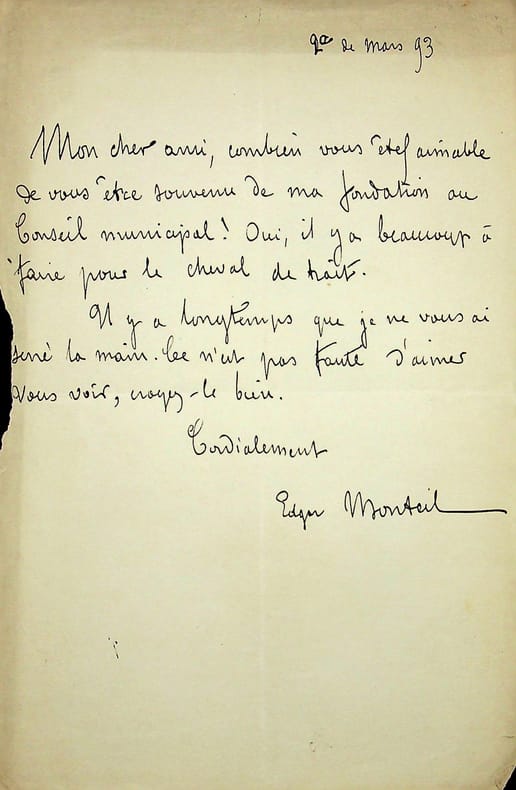 2e de mars 93
Mon cher ami, combien vous êtes aimable
de vous être souvenu de ma fondation au
Conseil municipal! Oui, il y a beaucoup à
faire pour le cheval de trait.
Il y a longtemps que je ne vous ai
serré la main. Ce n'est pas faute d'aimer
vous voir, croyez-le bien.
Cordialement
Edgar Monteil